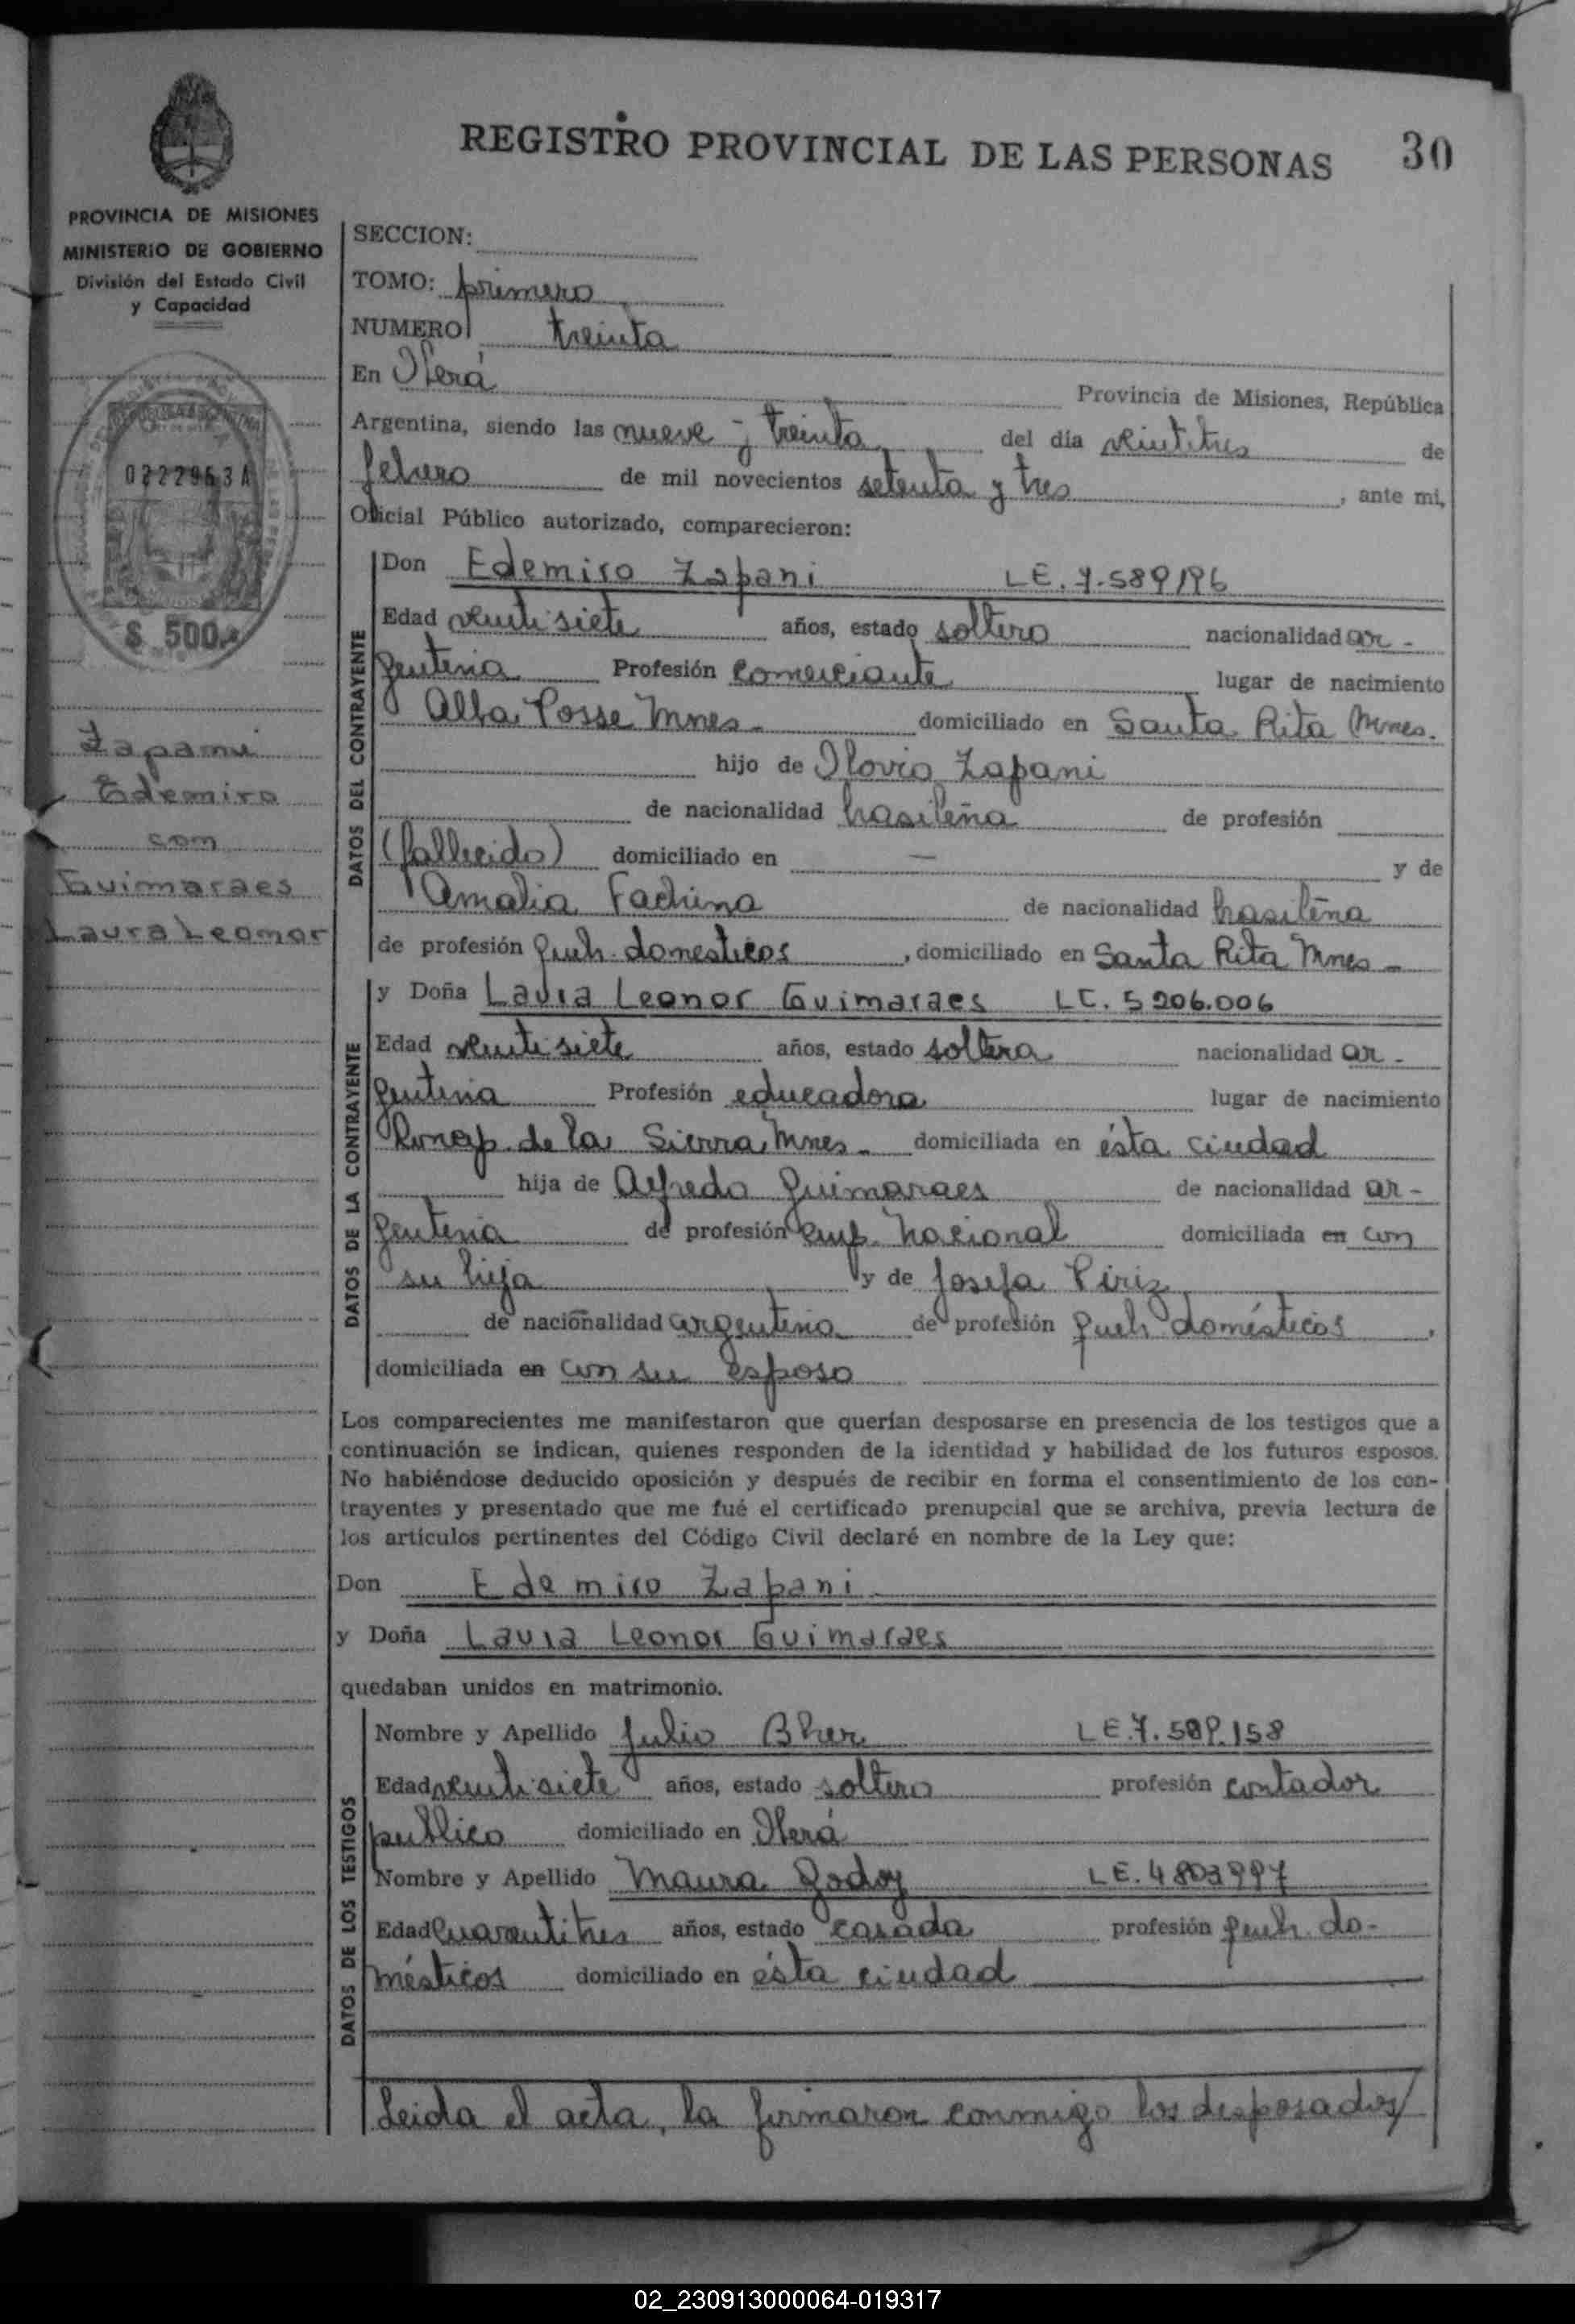 REGISTRO PROVINCIAL DE LAS PERSONAS 30
PROVINCIA DE MISIONES
MINISTERIO DE GOBIERNO
División del Estado Civil
y Capacidad
0222953 A
$ 500.-
Zapani
Edemiro
con
Guimaraes
Laura Leonor
SECCION:
TOMO: primero
NUMERO treinta
En Oberá Provincia de Misiones, República
Argentina, siendo las nueve y treinta del día veintitres de
febrero de mil novecientos setenta y tres, ante mi,
Oficial Público autorizado, comparecieron:
DATOS DEL CONTRAYENTE
Don Edemiro Zapani LE. 7.589196
Edad veintisiete años, estado soltero nacionalidad ar-
gentina Profesión comerciante lugar de nacimiento
Alba Posse Mnes. domiciliado en Santa Rita Mnes.
hijo de Olovio Zapani
de nacionalidad brasileña de profesión
(fallecido) domiciliado en — y de
Amalia Fachina de nacionalidad brasileña
de profesión queh. domesticos, domiciliado en Santa Rita Mnes-
DATOS DE LA CONTRAYENTE
y Doña Laura Leonor Guimaraes LC. 5206.006
Edad veintisiete años, estado soltera nacionalidad ar-
gentina Profesión educadora lugar de nacimiento
Koncep. de la Sierra, Mnes. domiciliada en ésta ciudad
hija de Alfredo Guimaraes de nacionalidad ar-
gentina de profesión emp. Nacional domiciliada en con
su hija y de Josefa Piriz
de nacionalidad argentina de profesión queh domésticos,
domiciliada en con su esposo
Los comparecientes me manifestaron que querían desposarse en presencia de los testigos que a
continuación se indican, quienes responden de la identidad y habilidad de los futuros esposos.
No habiéndose deducido oposición y después de recibir en forma el consentimiento de los con-
trayentes y presentado que me fué el certificado prenupcial que se archiva, previa lectura de
los artículos pertinentes del Código Civil declaré en nombre de la Ley que:
Don Edemiro Zapani
y Doña Laura Leonor Guimaraes
quedaban unidos en matrimonio.
DATOS DE LOS TESTIGOS
Nombre y Apellido Julio Bher LE.7.589.158
Edad veintisiete años, estado soltero profesión contador
publico domiciliado en Oberá
Nombre y Apellido Maura Godoy LE. 4803997
Edad cuarentitres años, estado casada profesión queh. do-
mésticos domiciliado en ésta ciudad
Leida el acta, la firmaron conmigo los desposados/
02_230913000064-019317